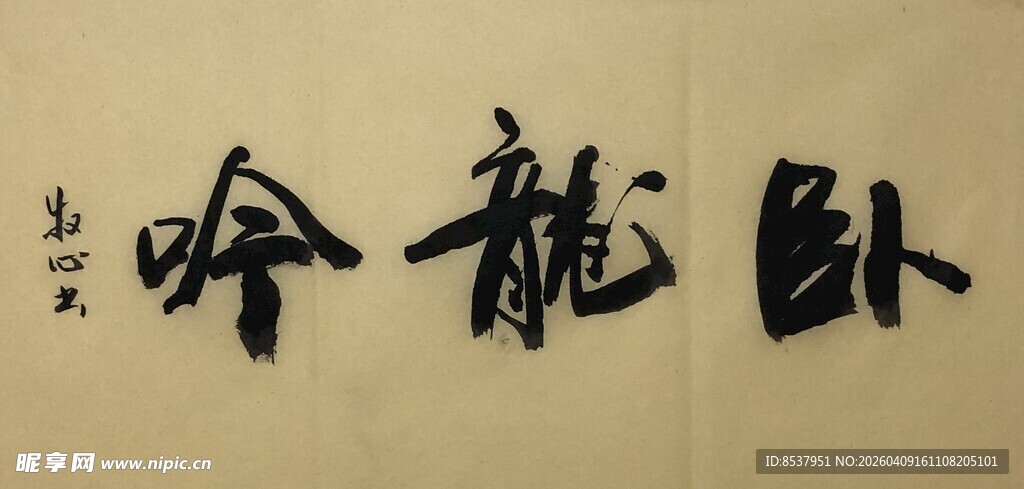 卧龍吟
牧正书
昵享网 www.nipic.cn
ID:8537951 NO:20260409161108205101